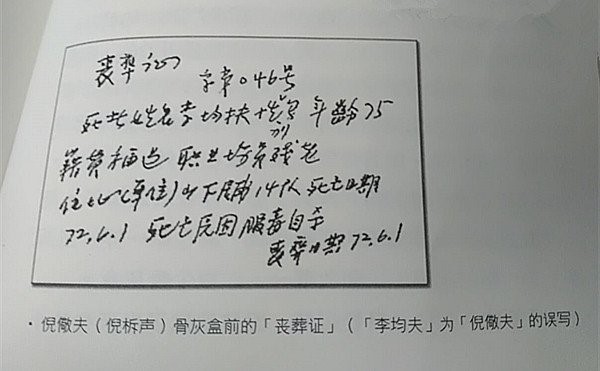 丧葬证
字第046号
死者姓名李均扶 性别 年龄75
籍贯福建 职业场员残老
住址(单位) 14队 死亡日期
72.6.1 死亡原因服毒自杀
丧葬日期72.6.1
·倪儆夫（倪柝声）骨灰盒前的「丧葬证」（「李均夫」为「倪儆夫」的误写）